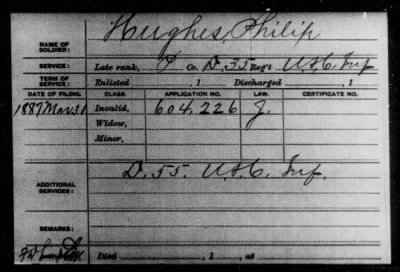 NAME OF SOLDIER: Hughes, Philip
SERVICE: Late rank, P Co. D, 55 Reg't U.S.C. Inf
TERM OF SERVICE: Enlisted , 1 Discharged , 1
DATE OF FILING. CLASS. APPLICATION NO. LAW. CERTIFICATE NO.
1887 Mar 31 Invalid, 604.226 J.
Widow,
Minor,
ADDITIONAL SERVICES: D. 55. U.S.C. Inf.
REMARKS:
Died , 1 , at